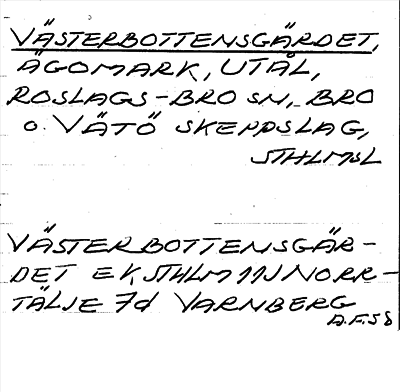 VÄSTERBOTTENSGÄRDET,
ÄGOMARK, UTÅL,
ROSLAGS-BRO SN, BRO
O. VÄTÖ SKEPPSLAG,
STHLMSL
VÄSTERBOTTENSGÄR-
DET EK, STHLM 11J NORR-
TÄLJE 7d VARNBERG
A.F.58